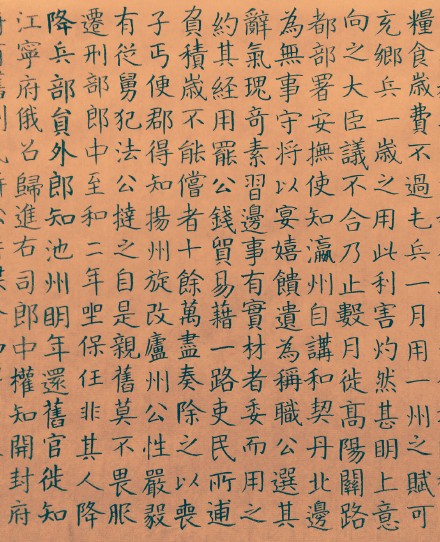 糧食歲費不過屯兵一月用一州之賦可
充鄉兵一歲之用此利害灼然甚明上意
向之大臣議不合乃止數月徙高陽關路
都部署安撫使知瀛州自講和契丹北邊
為無事守將以宴嬉饋遺為稱職公選其
辭氣瑰奇素習邊事有實材者委而用之
約其經用罷公錢貿易藉一路吏民所逋
負積歲不能償者十餘萬盡奏除之以喪
子丐便郡得知揚州旋改廬州公性嚴毅
有從舅犯法公撻之自是親舊莫不畏服
遷刑部郎中至和二年坐保任非其人降
降兵部員外郎知池州明年還舊官徙知
江寧府俄召歸進右司郎中權知開封府